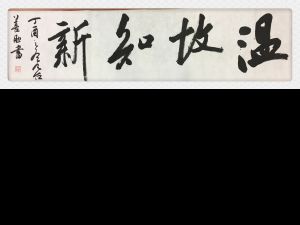 温故知新
丁酉之
善
書